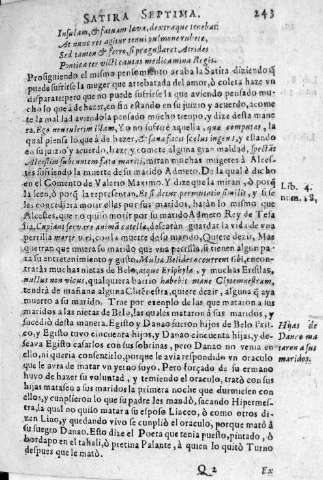 SATIRA SEPTIMA. 243
Insulam, & fatuam læva, dextraque tenebat:
At nunc res agitur tenui pulmone rubetæ,
Sed tamen & ferro, si prægustaret Atrides
Pontica ter victi cautas medicamina Regis.
Prosiguiendo el mismo pensamiento acaba la Satira diziendo q
puede sufrirse la muger arrebatada del amor, ò coleta haze vn
disparate pero que no puede sufrirse la que aviendo pensado mu-
cho lo que à de hazer, estando en su juyzio y acuerdo, acome
te la maldad aviendola pensado mucho tiempo, y dize desta mane
ra. Ego non tulerim illam, Yo no sufro aquella, que computat, la
qual piensa lo que à de hazer, & sana facit scelus ingens, y estando
en su juyzio y acuerdo, haze y comete alguna gran maldad, spectat
Alcestim subeuntem fata mariti, miran muchas mugetes à Alces-
tes sufriendo la muerte de su marido Admeto. De la qual è dicho
en el Comento de Valerio Maximo. Y dize que la miran, ò porq
la leen, ò porq la representan, & si detur permutatio similis, y si se
les concediera morir ellas por sus maridos, harán lo mismo que
Alcestes, que no quiso morir por su marido Admeto Rey de Tesa
lia, Cupiant servare animã catellæ, desearán guardar la vida de vna
perrilla morte viri, con la muerte de su marido. Quiere dezir, Mas
querran que muera su marido que vna perrilla, si tienen alguna pa-
ra su entretenimiento y gusto. Multa Belides occurrent tibi, encon-
trarás muchas nietas de Belo, atque Eriphylæ, y muchas Erifilas,
nullus non vicus, qualquiera barrio habebit mane Clytemnestram,
tendrà de mañana alguna Clitenestra, quiere dezir, alguna q aya
muerto a su marido. Trae por exemplo de las que mataron a sus
maridos a las nietas de Belo, las quales mataron à sus maridos, y
sucediò desta manera. Egisto y Danao fueron hijos de Belo Prisco,
y Egisto tuvo cincuenta hijos, y Danao cincuenta hijas, y de-
seava Egisto casarlos con sus sobrinas, pero Danao no venia en
ello, ni queria consentirlo, porque le avia respondido vn oraculo
que le avra de matar vn yerno suyo. Pero forçado de su ermano
huvo de hazer su voluntad, y temiendo el oraculo, tratò con sus
hijas matasen a sus maridos la primera noche que durmiesen con
ellos, y cunplieron lo que su padre les mandò, sacando Hipermes-
tra, la qual no quiso matar a su esposo Linceo, ò como otros di-
zen Lino, y quedando vivo se cunpliò el oraculo, porque matò à
su suegro Danao. Esto dize el Poeta que tenia puesto, pintado, ò
bordado en el tahali, ò pretina Palante, à quien lo quitò Turno
despues que le matò.
Lib. 4.
num. 18.
Hijas de
Danao ma
taron a sus
maridos.
Q 2 Ex